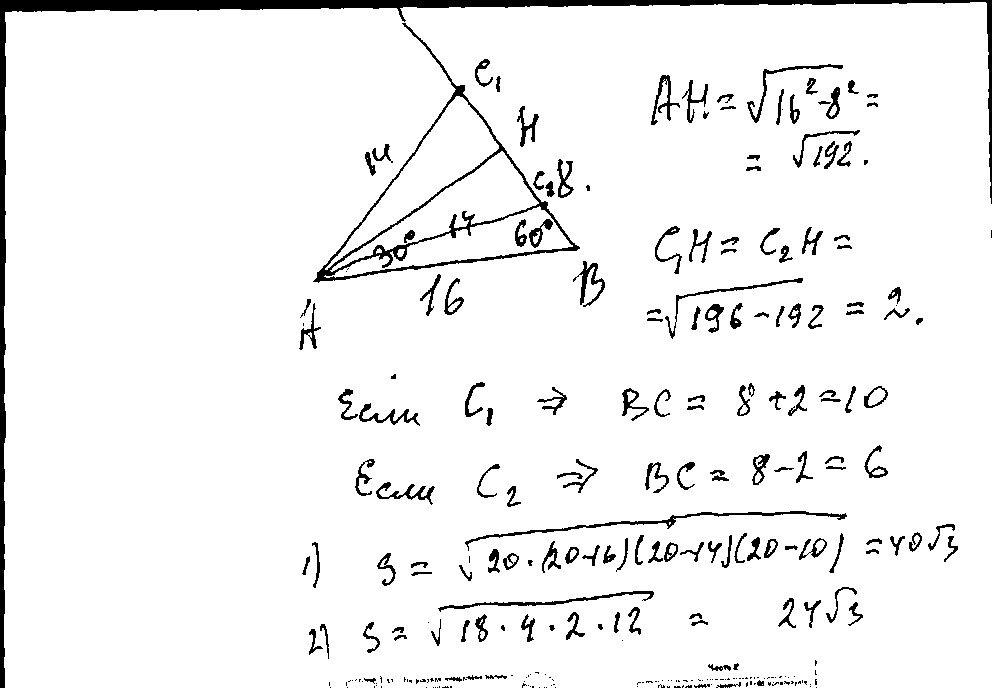 C₁
H
14
C₂ 8.
14
30° 60°
A 16 B
AH = √16² - 8² =
= √192.
C₁H = C₂H =
= √196 - 192 = 2.
Если C₁ ⇒ BC = 8 + 2 = 10
Если C₂ ⇒ BC = 8 - 2 = 6
1) S = √20 · (20-16)(20-14)(20-10) = 40√3
2) S = √18 · 4 · 2 · 12 = 24√3
Часть 2